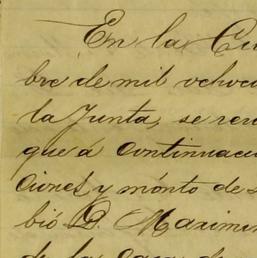 En la Cu
bre de mil ochoc
la Junta, se reu
que á continuaci
ciones y monto de s
bió D. Maximi
de la casa de